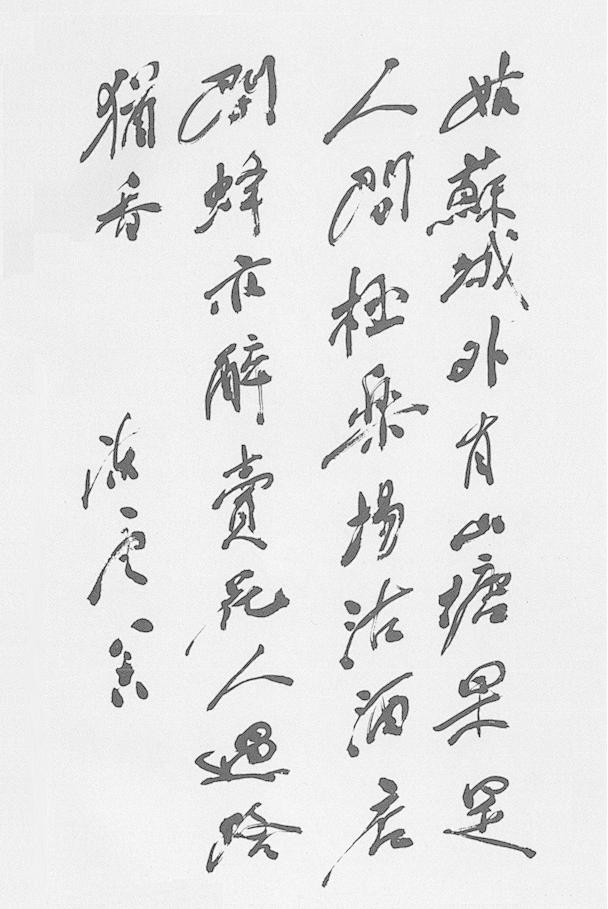 姑蘇城外有山塘果是
人間極楽場沽酒店
開蜂亦醉賣花人過路
猶香
海虞